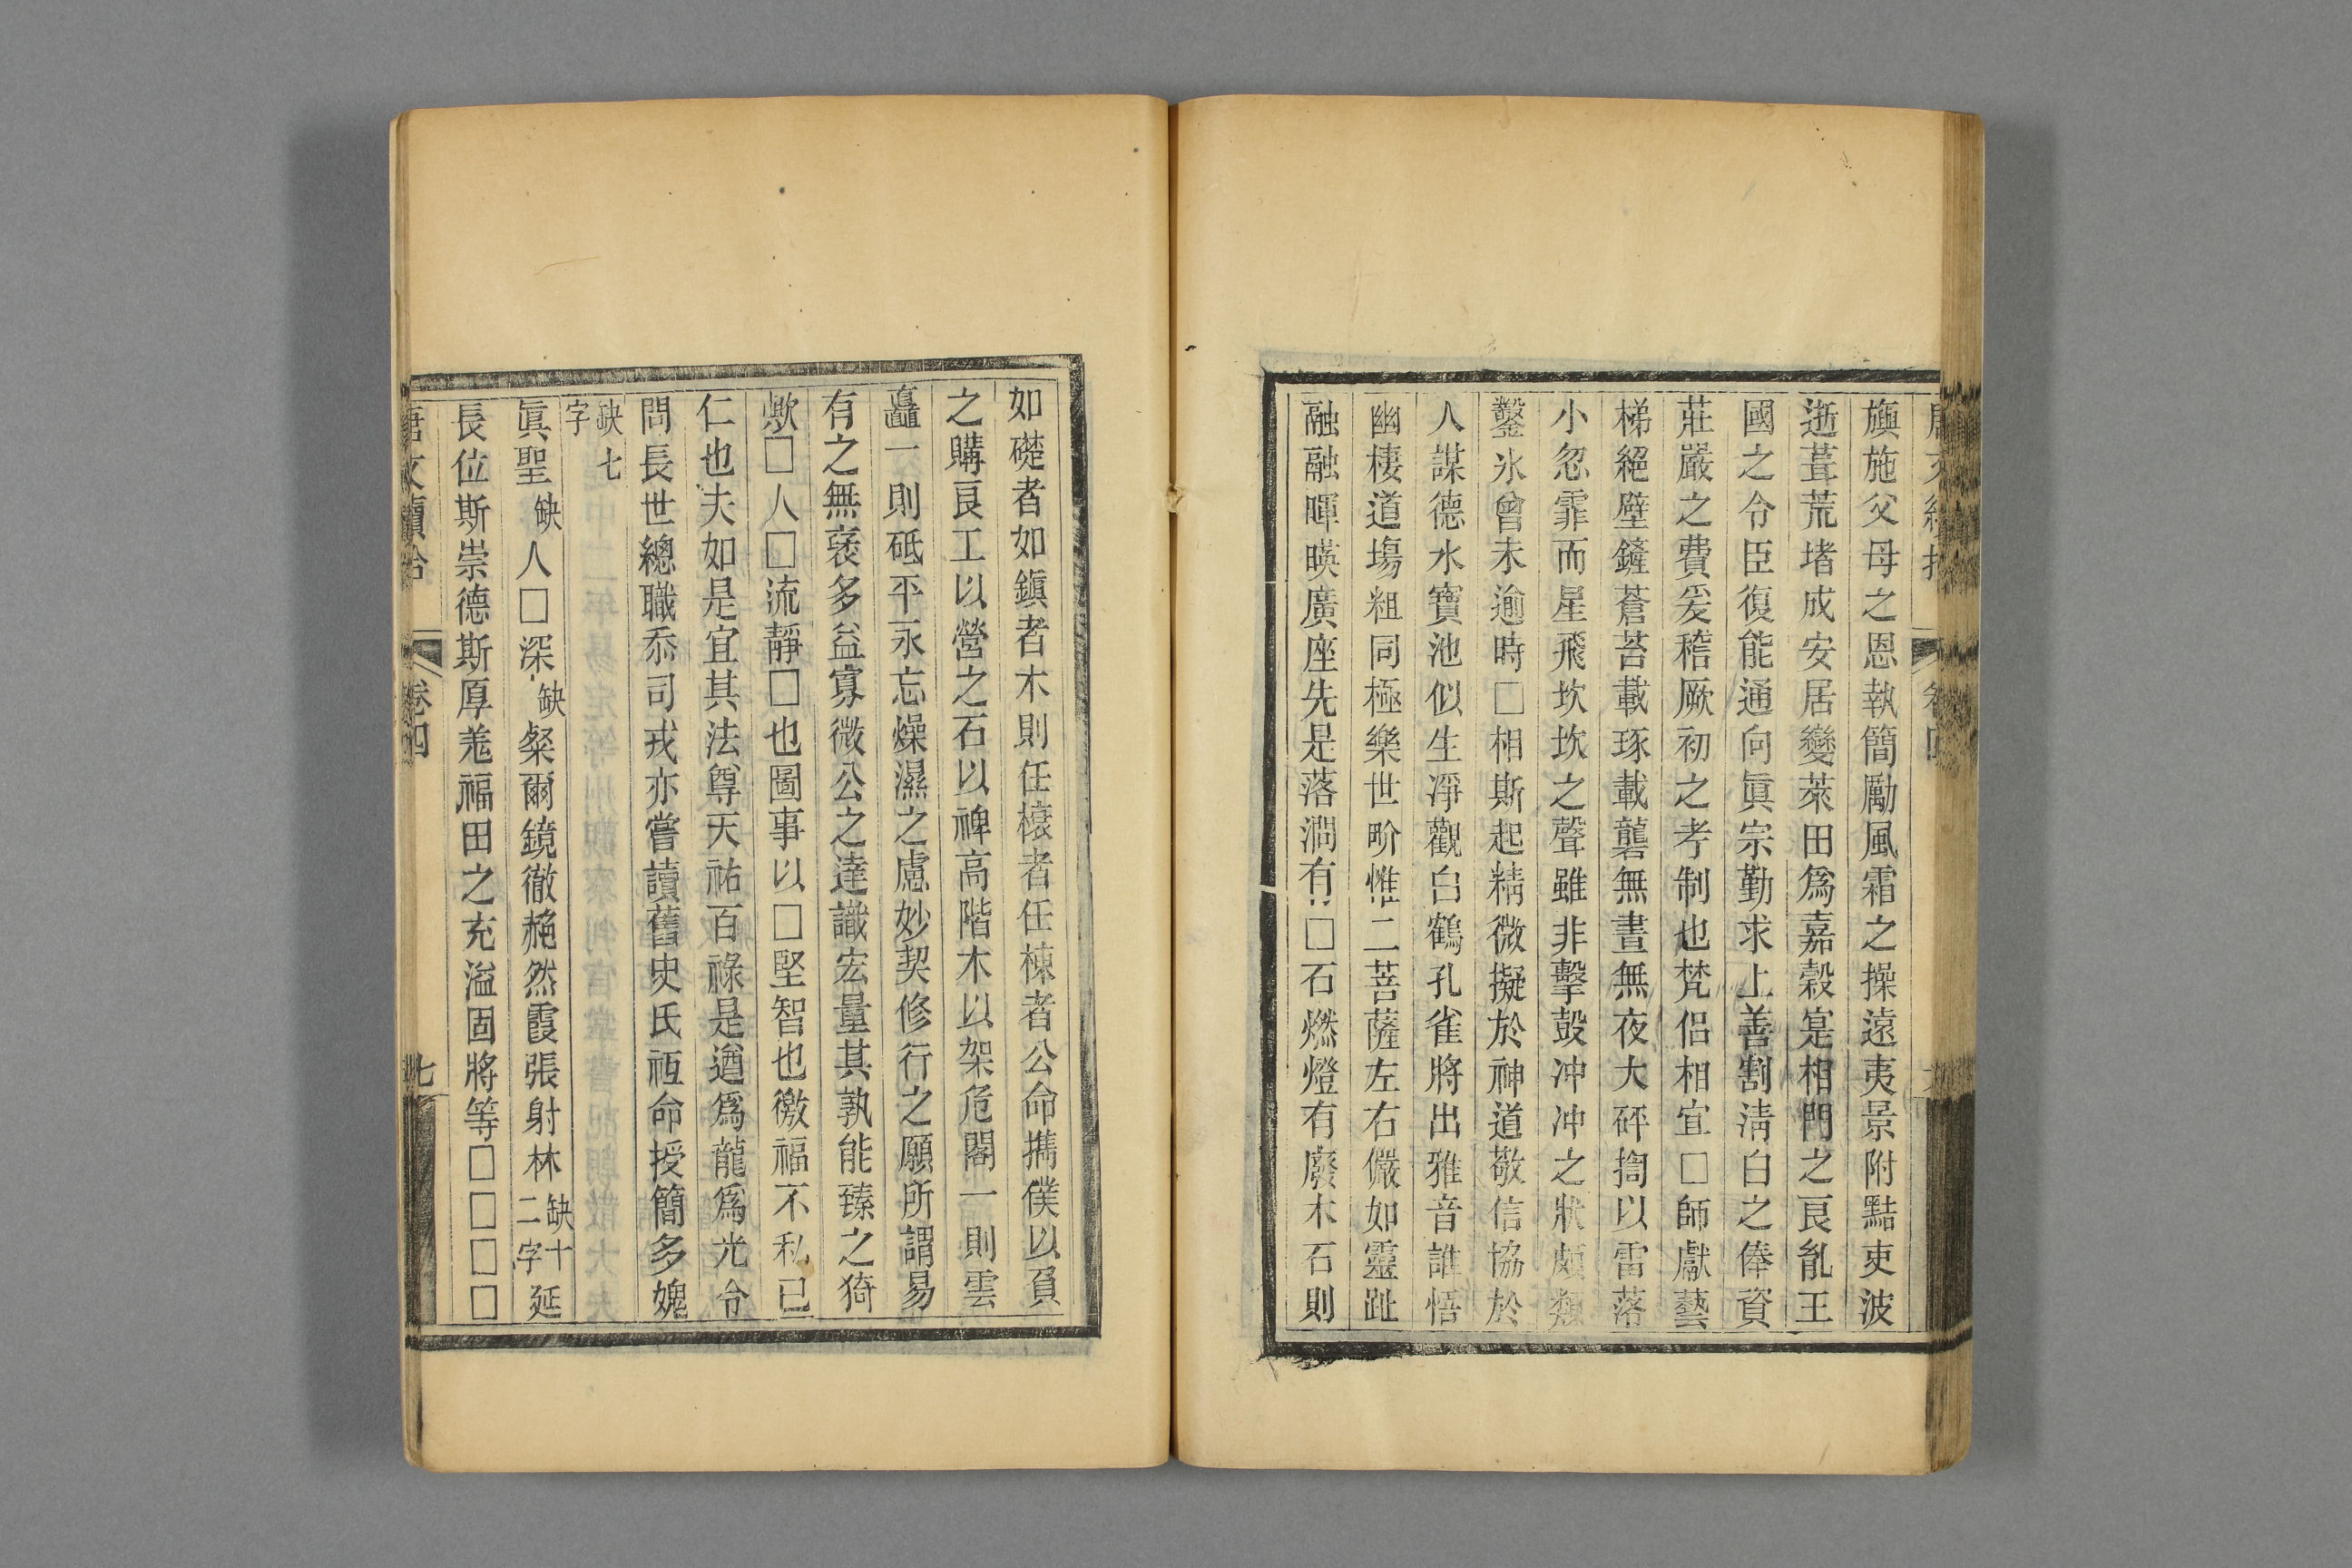 旟施父母之恩執簡勵風霜之操遠夷景附黠吏波
逝葺荒堵成安居變萊田爲嘉穀寔相門之良胤王
國之令臣復能通向眞宗勤求上善割淸白之俸資
莊嚴之費爰稽厥初之孝制也梵侶相宜□師獻藝
梯絕壁鏟蒼苔載琢載礱無晝無夜大砰搊以雷落
小忽霏而星飛坎坎之聲雖非擊鼓冲冲之狀頗類
鑿氷曾未逾時□相斯起精微擬於神道敬信協於
人謀德水寶池似生淨觀白鶴孔雀將出雅音誰悟
幽棲道場粗同極樂世畍惟二菩薩左右儼如靈趾
融融暉暎廣座先是落澗有□石燃燈有廢木石則
如礎者如鎭者木則任榱者任棟者公命攜僕以負
之購良工以營之石以裨高階木以架危閣一則雲
矗一則砥平永忘燥濕之慮妙契修行之願所謂易
有之無裦多益寡微公之達識宏量其孰能臻之猗
歟□人□流靜□也圖事以□堅智也徼福不私已
仁也夫如是宜其法尊天祐百祿是遒爲龍爲光令
問長世總職忝司戎亦嘗讀舊史氏祗命授簡多媿
缺七字
眞聖缺人□深缺粲爾鏡徹赩然霞張射林缺十二字延
長位斯崇德斯厚羗福田之充溢固將等□□□□
唐文續拾 卷四 七